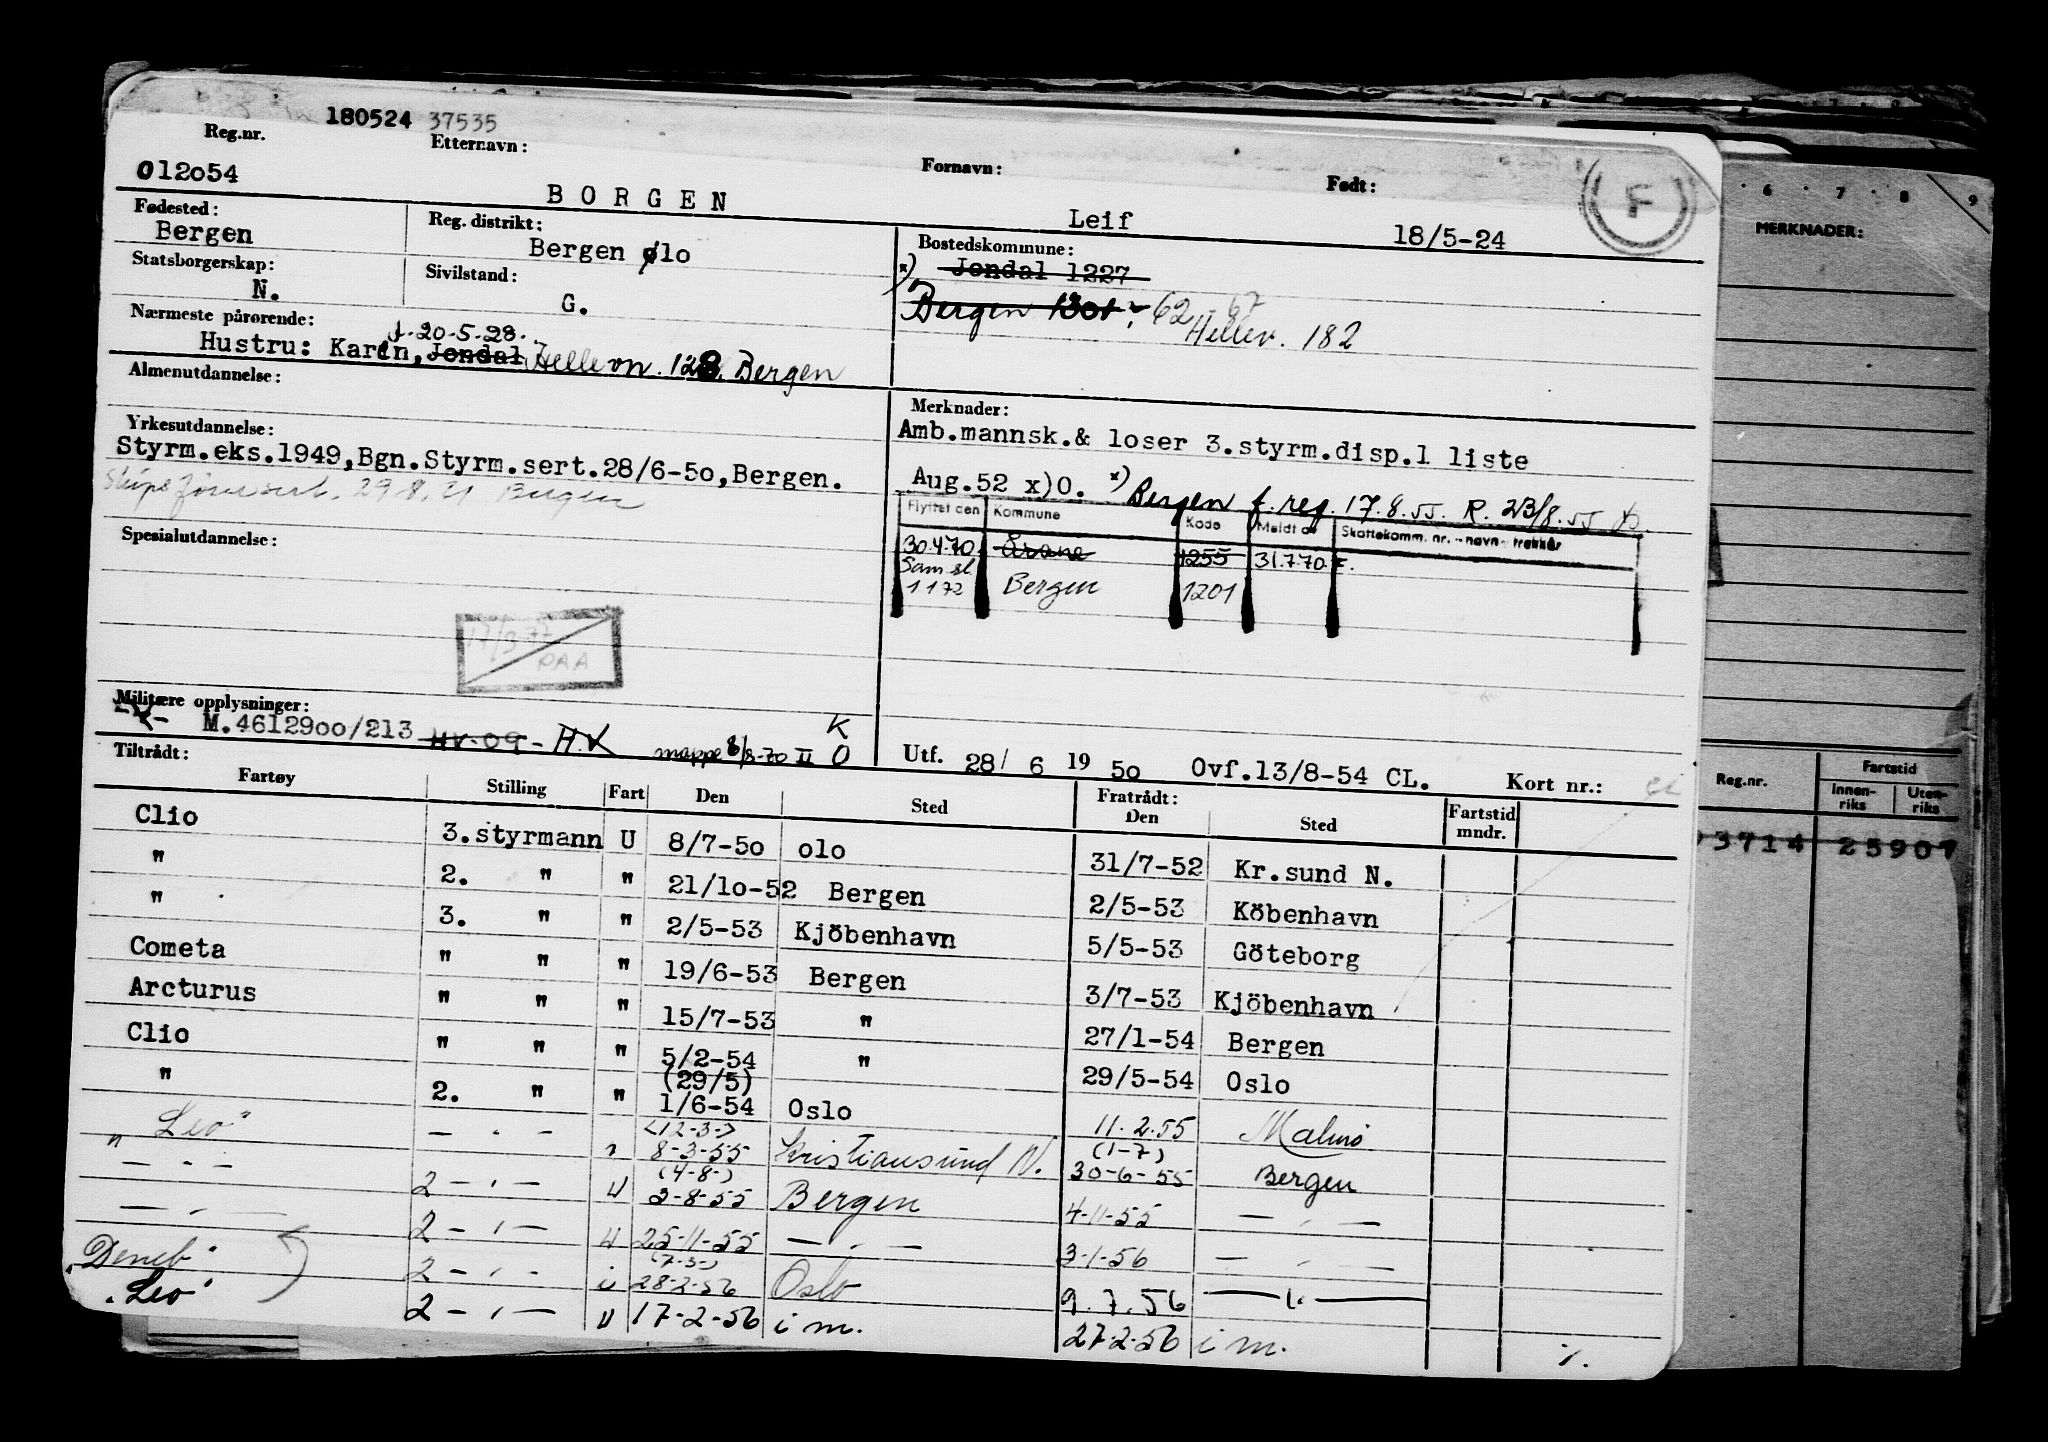 180524 37535
Reg.nr. Etternavn: Fornavn: Født:
012o54 BORGEN Leif 18/5-24 F
Fødested: Reg. distrikt: Bostedskommune:
Bergen Bergen ølo x) Jondal 1227
Statsborgerskap: Sivilstand:
N. G. Bergen 1301 62-67
Hellev. 182
Nærmeste pårørende:
f. 20-5-28.
Hustru: Karin, Jondal Hellevn. 128, Bergen
Almenutdannelse: Merknader:
Amb.mannsk.& loser 3.styrm.disp.1 liste
Yrkesutdannelse:
Styrm.eks.1949,Bgn.Styrm.sert.28/6-5o,Bergen.
Aug.52 x)O. x) Bergen f. reg. 17.8.55. R. 23/8.55
29.8.51 Bergen
Flyttet den Kommune Kode Meldt av Skattekomm. nr. - navn - trekkår
Spesialutdannelse:
30.4.70 Årane 1255 31.7.70
Sam.sl. 1 1 72 Bergen 1201
17/3-77 PAA
Militære opplysninger:
M.46129oo/213 HV-09 - H.V mappe 8/8-70 II K O
Utf. 28/ 6 19 5o Ovf.13/8-54 CL. Kort nr.:
Tiltrådt: Fratrådt:
Fartøy Stilling Fart Den Sted Den Sted Fartstid mndr.
Clio 3.styrmann U 8/7-5o olo 31/7-52 Kr.sund N.
" 2. " " 21/1o-52 Bergen 2/5-53 Köbenhavn
" 3. " " 2/5-53 Kjöbenhavn 5/5-53 Göteborg
Cometa " " " 19/6-53 Bergen 3/7-53 Kjöbenhavn
Arcturus " " " 15/7-53 " 27/1-54 Bergen
Clio " " " 5/2-54 " 29/5-54 Oslo
(29/5)
" 2. " " 1/6-54 Oslo 11.2.55 Malmö
(12-3-) (1-7)
"Leo" — " — " 8-3-55 Kristiansund N. 30-6-55 Bergen
(4-8-)
— " — 2 — " — U 3-8-55 Bergen 4-11-55 — " —
— " — 2 — " — U 25-11-55 — " — 3-1-56 — " —
(7-3-)
"Deneb" 2 — " — U 28-2-56 Oslo 9.7.56 — " —
"Leo" 2 — " — U 17-2-56 i m. 27-2-56 i m.
%.
6 7 8 9
MERKNADER:
Reg.nr. Fartstid
Innen-riks Uten-riks
3714 25907